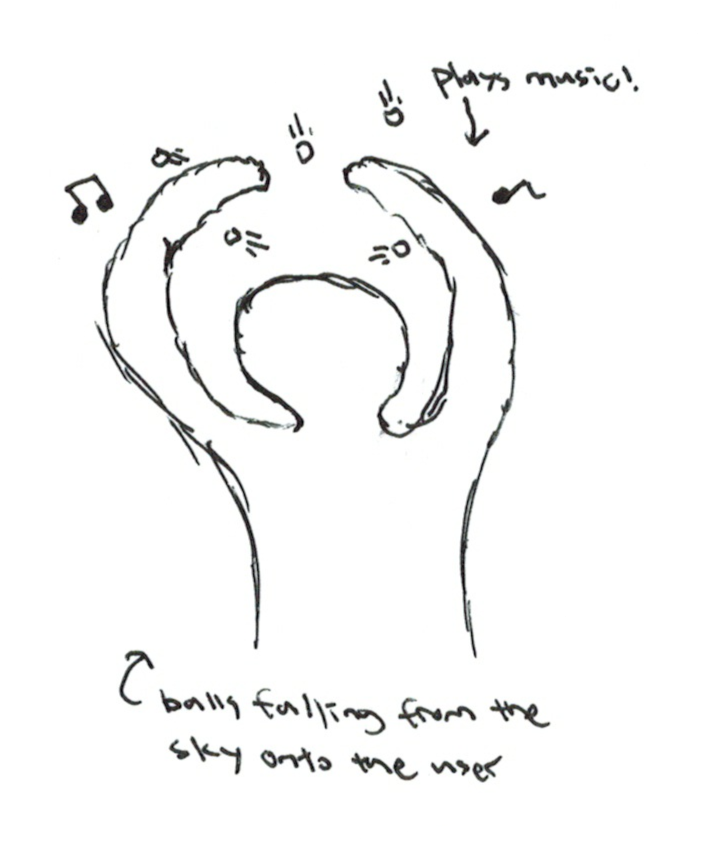 plays music!
balls falling from the
sky onto the user